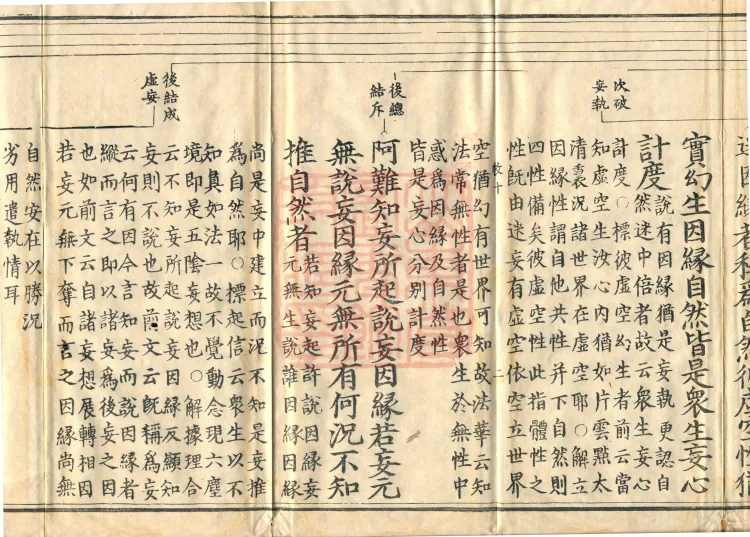 次破
妄執
因緣者稱為自然彼虛空性猶
實幻生因緣自然皆是衆生妄心
計度
說有因緣猶是妄執更認自
然迷中倍者故云衆生妄心
計度○標彼虛空幻生者前云當
知虛空生汝心內猶如片雲點太
清裏況諸世界在虛空耶○解立
因緣性謂自他共性并下自然則
四性備矣彼虛空性此指體性之
性既由迷妄有虛空依空立世界
後總
結斥
空猶幻有世界可知故法華云知
法常無性者是也衆生於無性中
惑爲因緣及自然性
皆是妄心分別計度
阿難知妄所起說妄因緣若妄元
無說妄因緣元無所有何況不知
推自然者
若知妄起許說因緣妄
元無生說誰因緣因緣
後結成
虛妄
尚是妄中建立而況不知是妄推
爲自然耶○標起信云衆生以不
知真如法一故不覺動念現六塵
境即是五陰妄想也○解據理合
云不知妄所起說妄因緣反顯知
妄則不說也故前文云既稱爲妄
云何有因今言知妄而說因緣者
縱而言之即以諸妄爲後妄之因
也如前文云自諸妄想展轉相因
若妄元無下奪而言之因緣尚無
自然安在以勝況
劣用遣執情耳